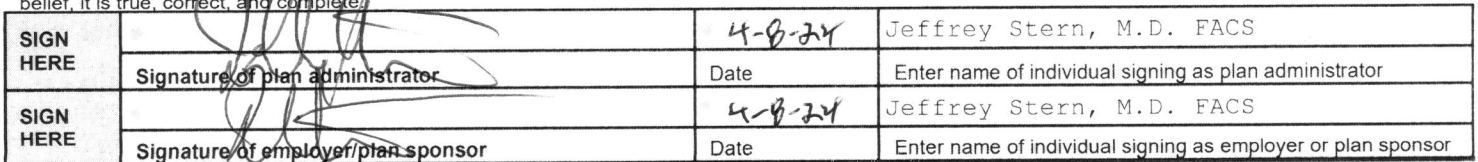 belief, it is true, correct, and complete.
SIGN HERE 4-8-24 Jeffrey Stern, M.D. FACS
Signature of plan administrator Date Enter name of individual signing as plan administrator
SIGN HERE 4-8-24 Jeffrey Stern, M.D. FACS
Signature of employer/plan sponsor Date Enter name of individual signing as employer or plan sponsor